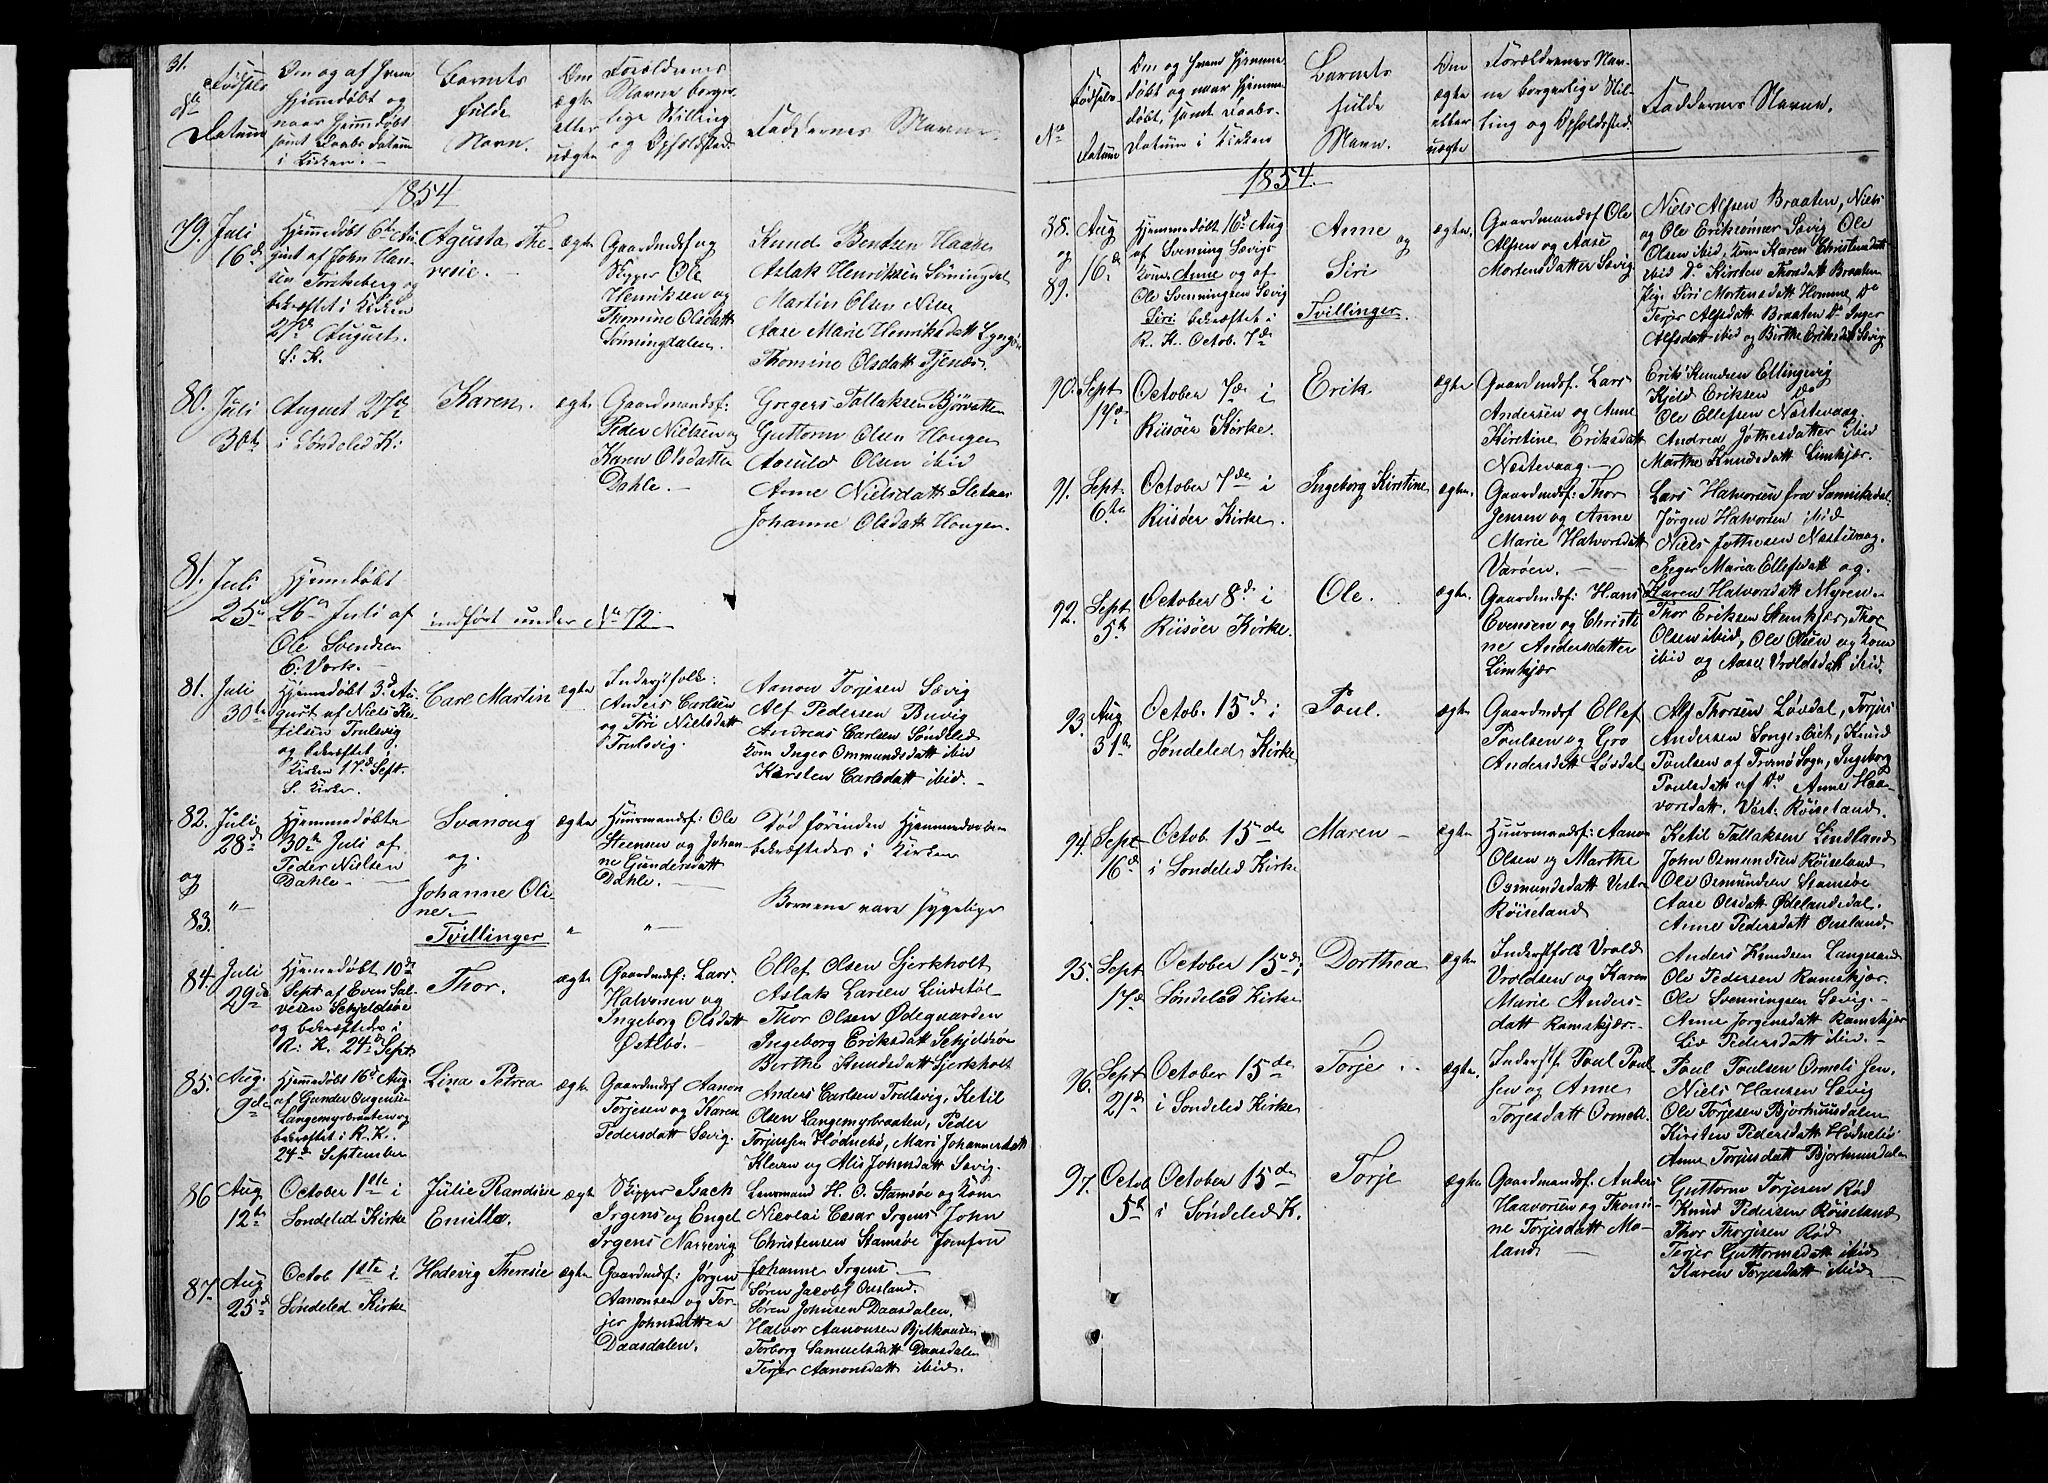 31.
No
Fødsels
Datum
Om og af hvem
hjemmedøbt og
naar hjemmedøbt
samt Daabs Datum
i Kirken.
Barnets
fulde
Navn.
Om
ægte
eller
uægte
Forældrenes
Navne borger-
lige Stilling
og Opholdsted.
Faddernes Navne.
1854
79. Juli
16d
Hjemmedøbt 6te Au-
gust af John Han-
sen
bekræftet i Kirken
27d August.
S. K.
Agusta The-
resie.
ægte
Gaardmdsf og
Skipper Ole
Henriksen og
Thomine Olsdatt
Sönningdalen.
Knud Bentsen Haase
Aslak Henriksen Sönningdal
Martin Olsen
Aase Marie Henriksdatt Lyngør
Thomine Olsdatt Tjenæs
80. Juli
3te
August 27de
i Søndeled K:
Karen.
ægte
Gaardmandsf:
Peder Nielsen og
Karen Olsdatter
Dahle.
Gregers Tallaksen Bjørvatten
Guttorm Olsen Hougen
Aasuld Olsen ibid
Anne Nielsdatt Sletaas
Johanne Olsdatt Hougen.
81. Juli
25d
Hjemmedøbt
26de Juli af
Ole Svendsen
indført under No 72.
81. Juli
30te
Hjemmedøbt 3d Au-
gust af Niels Ke-
tilsen Trulsvig
og bekræftet i
Kirken 17d Sept.
S. Kirke.
Carl Martin
ægte
Inderstfolk:
Anders Carlsen
og Tori Nielsdatt
Trulsvig.
Aanon Torjesen Sævig
Alf Pedersen Buvig
Andreas Carlsen Søndeled
Kom Inger Ommundsdatt ibid
Kirsten Carlsdatt ibid.
82. Juli
28de
og
83. "
Hjemmedøbte
30te Juli af
Peder Nielsen
Dahle
Svanoug
og
Johanne Oli-
ne
Tvillinger
ægte
"
Huusmandsf: Ole
Steensen og Johan-
ne Gundersdatt
Dahle.
"
Død förinden Hjemmedaaben
bekræftedes i Kirken
Børnene vare sygelige
84. Juli
29de
Hjemmedøbt 10de
Sept af Even Sal-
vesen Schjeldsöe
og bekræftedes i
R: K. 24de Sept.
Thor.
ægte
Gaardmdsf: Lars
Halvorsen og
Ingeborg Olsdatt
Østebø.
Ellef Olsen Sjerkholt
Aslak Larsen Lindstöl
Thor Olsen Ödegaarden
Ingeborg Eriksdatt Schjeldsöe
Berthe Knudsdatt Sjerkholt
85. Aug.
9de
Hjemmedøbt 16d Aug.
af Gunder
Langemyrbraaten og
bekræftet i R. K.
24d September
Lina Petrea
ægte
Gaardmdsf Aanon
Torjesen og Karen
Pedersdatt Sævig.
Anders Carlsen Trulsvig, Ketil
Olsen Langemyrbraaten, Peder
Torjussen Hødnebø, Mari Johannesdatt
Kleven og Alis Johnsdatt Sævig.
86 Aug.
12te
October 1ste i
Søndeled Kirke
Julie Randine
Emilie.
ægte
Skipper Isach
Irgens og Engel
Irgens Narrevig
Lensmand H. O. Stamsøe og Kone
Nicolai Cesar Irgens John
Christensen Stamsøe Jomfru
Johanne Irgens
87. Aug
25d
Octob 1ste i
Søndeled Kirke
Hedevig Theresie
ægte
Gaardmdsf: Jørgen
Aanonsen og Ter-
jer Johnsdatter
Daasdalen.
Søren Jacobs Ousland.
Søren Johnsen Daasdalen.
Halvor Aanonsen
Torborg Samuelsdatt Daasdalen
Terjer Aanonsdatt ibid.
No
Fødsels
Datum
Om og hvem hjemme-
døbt og naar hjemme-
døbt, samt Daabs-
Datum i Kirken
Barnets
fulde
Navn.
Om
ægte
eller
uægte
Forældrenes Nav-
ne borgerlige Stil-
ling og Opholdsted.
Faddernes Navne.
1854.
88. Aug
og 16d
89.
Hjemmedøbt 16d Aug
af Svenning Sævigs
Kone, Anne og af
Ole Svenningsen Sævig
Siri bekræftet i
R. K. Octob. 7de
Anne
og
Siri
Tvillinger.
ægte.
Gaardmandsf Ole
Alfsen og Aase
Mortensdatter Sævig
Niels Alfsen Braaten, Niels
og Ole Eriksönner Sævig Ole
Olsen ibid, Kone Karen Christensdatt
ibid Do Kirsten Thorsdatt Braaten
Pige Siri Mortensdatt Homme, Do
Terjer Alfsdatt Braaten Do Inger
Alfsdatt ibid og Birthe Eriksdatt Sævig
90. Sept
17de
October 7de i
Riisøer Kirke.
Erik
ægte
Gaardmdsf. Lars
Andersen og Anne
Kirstine Eriksdatt
Næstevaag.
Erik Knudsen Ellingvig
Kjeld Eriksen Do
Ole Ellefsen Næstevaag.
Andrea Jothesdatter ibid
Marthe Knudsdatt Limkjær.
91. Sept.
6te
October 7de i
Riisøer Kirke.
Ingeborg Kirstine
ægte.
Gaardmdsf: Thor
Jensen og Anne
Marie Halvorsdatt
Varöen.
Lars Halvorsen fra Sannikedal
Jørgen Halvorsen ibid
Niels Jothesen Næstevaag.
Inger Maria Ellefsdatt og
Karen Halvorsdatt Myren.
92. Sept
5te
October 8de i
Riisøer Kirke.
Ole.
ægte.
Gaardmdsf: Hans
Evensen og Christi-
ne Andersdatter
Limkjær
Thor Eriksen Stenkjær, Thor
Olsen ibid, Ole Olsen og Kone
ibid og Aase Vroldsdatt ibid.
93. Aug
31te
Octob. 15de i
Søndeled Kirke
Poul.
ægte
Gaardmdsf Ellef
Poulsen og Gro
Andersdatt Løvdal
Alf Thorsen Løvdal, Torjus
Andersen Songe Eiet, Knud
Poulsen af Tromø Sogn, Ingeborg
Poulsdatt af Do Anne Haa-
vorsdatt. Vest. Röiseland.
94. Sept
16d
Octob. 15de
i Søndeled Kirke
Maren
ægte
Huusmandsf: Aanon
Olsen og Marthe
Osmundsdatt Vestre
Röiseland
Ketil Tallaksen Lindland
John Osmundsen Röiseland
Ole Osmundsen Stamsøe
Aase Olsdatt Ødelandsdal.
Anne Pedersdatt Ousland.
95. Sept
17de
October 15de i
Søndeled Kirke
Dorthea
ægte.
Inderstfolk Vrold
Vroldsen og Karen
Marie Anders-
datt Ramskjær.
Anders Knudsen Langesand
Ole Pedersen Ramskjær.
Ole Svenningsen Sævig.
Anne Jørgensdatt Ramskjær
Liv Pedersdatt ibid.
96. Sept
21d
October 15de
i Søndeled Kirke
Torje.
ægte.
Inderstf. Poul Poul-
sen og Anne
Torjesdatt Ormeli.
Poul Poulsen Ormeli Sen.
Niels Hansen Sævig
Ole Torjesen Bjorhuusdalen
Kirsten Pedersdatt Hødnebö
Anne Torjusdatt Bjorhuusdalen
97. Octob
5te
October 15de
i Søndeled K.
Torje
ægte
Gaardmandsf: Anders
Haavorsen og Thomi-
ne Torjesdatt Mo-
land
Guttorm Torjesen Röd
Knud Pedersen Röiseland
Thor Thorjesen Röd
Terjer Guttormsdatt ibid
Karen Torjesdatt ibid